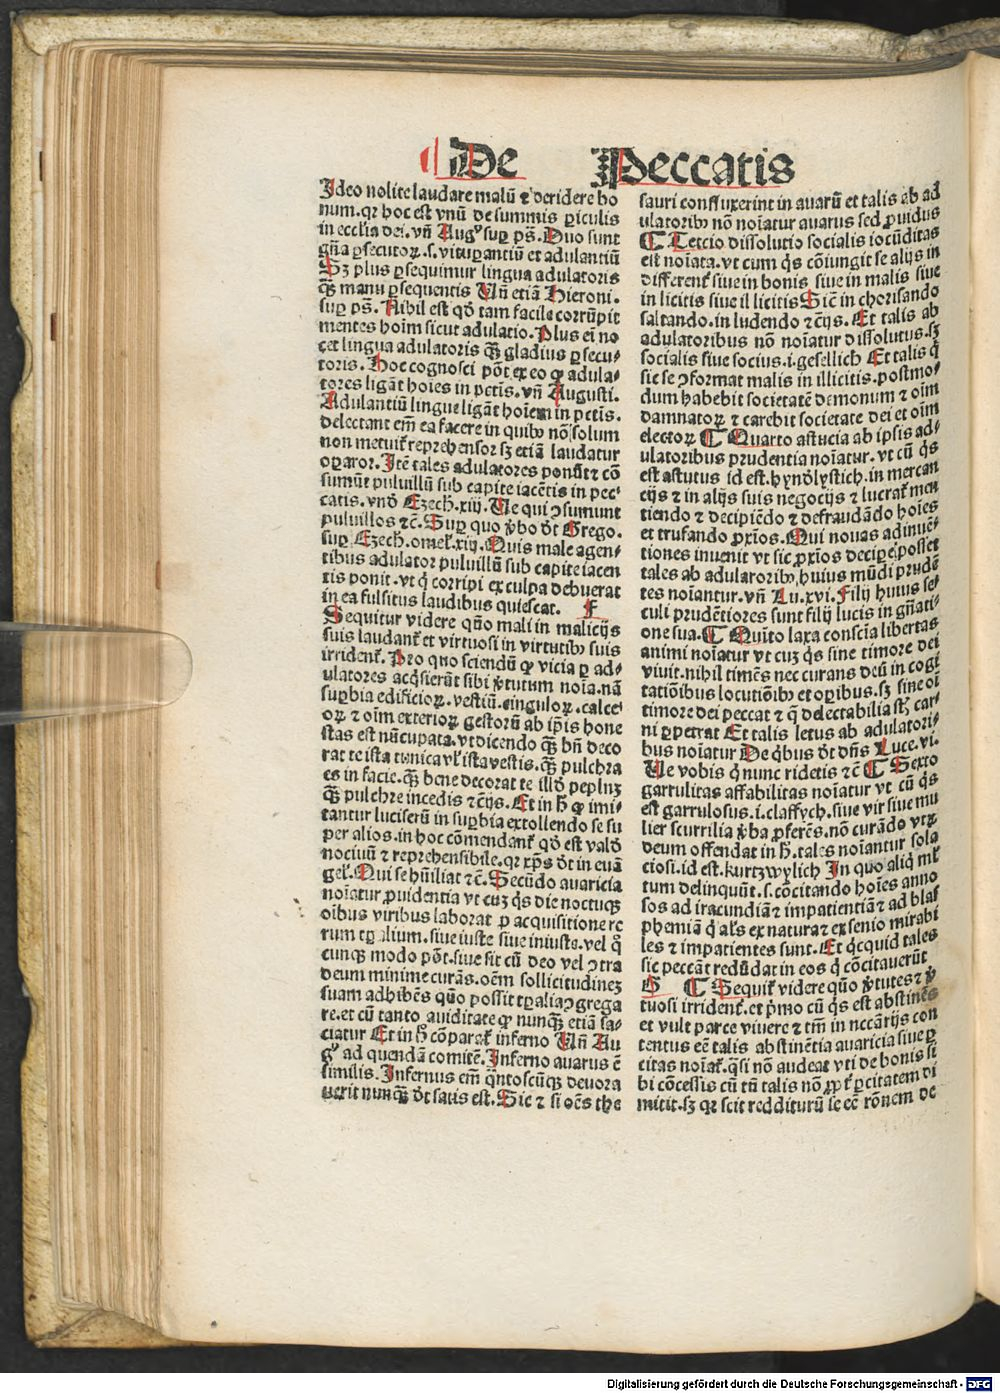 De Peccatis
Ideo nolite laudare malū ⁊ deridere bo
num. qꝛ hoc est vnū de summis ꝑiculis
in ecclia dei. vñ Augꝰ suꝑ ps̄. Duo sunt
gn̄a ꝑsecutoꝝ. s. vituꝑantiū et adulantiū
Sꝫ plus ꝑsequimur lingua adulatoris
qꝫ̄ manu ꝑsequentis Uñ etiā Hieroni.
suꝑ ps̄. Nihil est qḋ tam facile corrūpit
mentes hoīm sicut adulatio. Plus eī no
cet lingua adulatoris qꝫ̄ gladius ꝑsecu⸗
toris. Hoc cognosci pōt ex eo ꝙ adula⸗
tores ligāt hoies in pctīs. vñ Augusti.
Adulantiū lingue ligāt hoīem in pctīs.
delectant em̄ ea facere in quibꝰ nō solum
non metuit̄ reprehensor sꝫ etiā laudatur
oꝑator. Itē tales adulatores ponūt ⁊ cō
sumūt puluillū sub capite iacētis in pec⸗
catis. vnḋ Ezech. xiij. Ue qui ↄsumunt
puluillos ⁊c̄. Suꝑ quo ꝟbo dt̄ Grego.
suꝑ Ezech. omel̄. xiij. Quis male agen⸗
tibus adulator puluillū sub capite iacen
tis ponit. vt q̇ corripi ex culpa debuerat
in ea fulsitus laudibus quiescat. F
Sequitur videre quō mali in malicijs
suis laudant̄ et virtuosi in virtutibꝰ suis
irrident̄. Pro quo sciendū ꝙ vicia ꝑ ad⸗
ulatores acq̇sierūt sibi ꝟtutum noīa. nā
suꝑbia edificioꝝ. vestiū. cinguloꝝ. calce⸗
oꝝ ⁊ oīm exterioꝝ gestorū ab ip̄is hone
stas est nūcupata. vt dicendo qꝫ̄ bn̄ deco
rat te ista tunica vl̄ ista vestis. qꝫ̄ pulchra
es in facie. qꝫ̄ bene decorat te illḋ peplnꝫ
qꝫ̄ pulchre incedis ⁊c̄ijs. Et in h̄ ꝙ imi⸗
tantur luciferū in suꝑbia extollendo se su
per alios. in hoc cōmendant̄ qḋ est valḋ
nociuū ⁊ reprehensibile. qꝛ xp̄s dt̄ in euā
gel̄. Qui se hūiliat ⁊c̄. Secūdo auaricia
noīatur ꝓuidentia vt cuꝫ q̇s die noctuqꝫ
oībus viribus laborat ꝓ acquisitione re
rum tꝑalium. siue iuste siue iniuste. vel q̄
cunqꝫ modo pōt. siue sit cū deo vel ↄtra
deum minime curās. oēm sollicitudineꝫ
suam adhibēs quō possit tꝑalia ↄgrega
re. et cū tanto auiditate ꝙ nunqꝫ̄ etiā sa⸗
ciatur Et in h̄ cōparat̄ inferno Uñ Au
gꝰ ad quendā comitē. Inferno auarus ē
similis. Infernus em̄ q̄ntoscūqꝫ deuora
uerit nunqꝫ̄ dt̄ satis est. Sic ⁊ si oēs the
sauri confluxerint in auarū et talis ab ad
ulatoribꝰ nō noīatur auarus sed ꝓuidus
¶ Tercio dissolutio socialis iocūditas
est noīata. vt cum q̇s cōiungit se alijs in
different̄ siue in bonis siue in malis siue
in licitis siue illicitis Sic̄ in chorisando
saltando. in ludendo ⁊c̄ijs. Et talis ab
adulatoribus nō noīatur dissolutus. sꝫ
socialis siue socius. i. gesellich Et talis q̄
sic se ↄformat malis in illicitis. postmo⸗
dum habebit societatē demonum ⁊ oīm
damnatoꝝ ⁊ carebit societate dei et oīm
electoꝝ ¶ Quarto astucia ab ipsis ad⸗
ulatoribus prudentia noīatur. vt cū q̇s
est astutus id est. hynderlystich. in mercan
cijs ⁊ in alijs suis negocijs ⁊ lucrat̄ men
tiendo ⁊ decipiēdo ⁊ defraudādo hoīes
et trufando ꝓxīos. Qui nouas adinuē⸗
tiones inuenit vt sic ꝓxīos decipe posset
tales ab adulatoribꝰ, huius mūdi prudē
tes noīantur. vñ Lu. xvi. Filij huius se⸗
culi prudētiores sunt filij lucis in gn̄ati⸗
one sua. ¶ Quīto laxa conscīa libertas
animi noīatur vt cuꝫ q̇s sine timore dei
viuit. nihil timēs nec curans deū in cogi
tatiōibus locutiōibꝰ et oꝑibus. sꝫ sine oī
timore dei peccat ⁊ q̄ delectabilia st̄ car⸗
ni ꝑpetrat Et talis letus ab adulatori⸗
bus noīatur De q̇bus dt̄ dn̄s Luce. vi.
Ue vobis q̇ nunc ridetis ⁊c̄ ¶ Sexto
garrulitas affabilitas noīatur vt cū q̇s
est garrulosus. i. claffych. siue vir siue mu
lier scurrilia ꝟba ꝓferēs. nō curādo vtꝝ
deum offendat in h̄. tales noīantur sola
ciosi. id est. kurtzwylich In quo aliq̇ ml̄
tum delinquūt. s. cōcitando hoīes anno
sos ad iracundiā ⁊ impatientiā ⁊ ad blas
phemiā q̇ al̄s ex natura ⁊ ex senio mirabi
les ⁊ impatientes sunt. Et q̇cquid tales
sic peccāt redūdat in eos q̇ cōcitauerūt
G ¶ Sequit̄ videre quō ꝟtutes ⁊ ꝟ
tuosi irrident̄. et pͥmo cū q̇s est abstinēs
et vult parce viuere ⁊ tm̄ in nccārijs con
tentus eē talis abstinētia auaricia siue ꝑ
citas noīat̄. q̄si nō audeat vti de bonis si
bi cōcessis cū tn̄ talis nō ꝓpt̄ ꝑcitatem di
mitit. sꝫ qꝛ scit redditurū se eē rōnem de
Digitalisierung gefördert durch die Deutsche Forschungsgemeinschaft - DFG